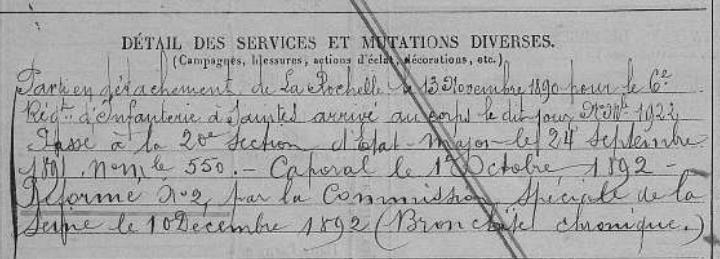 DÉTAIL DES SERVICES ET MUTATIONS DIVERSES.
(Campagnes, blessures, actions d'éclat, décorations, etc.)
Parti en détachement de La Rochelle le 13 Novembre 1890 pour le 6e
Régt d'Infanterie à Saintes arrivé au corps le dit jour No Mle 1922
Passé à la 20e Section d'État-Major le 24 Septembre
1891. No m le 550. — Caporal le 1er Octobre 1892 —
Réformé No 2, par la Commission Spéciale de la
Seine le 10 Décembre 1892 (Bronchite chronique.)